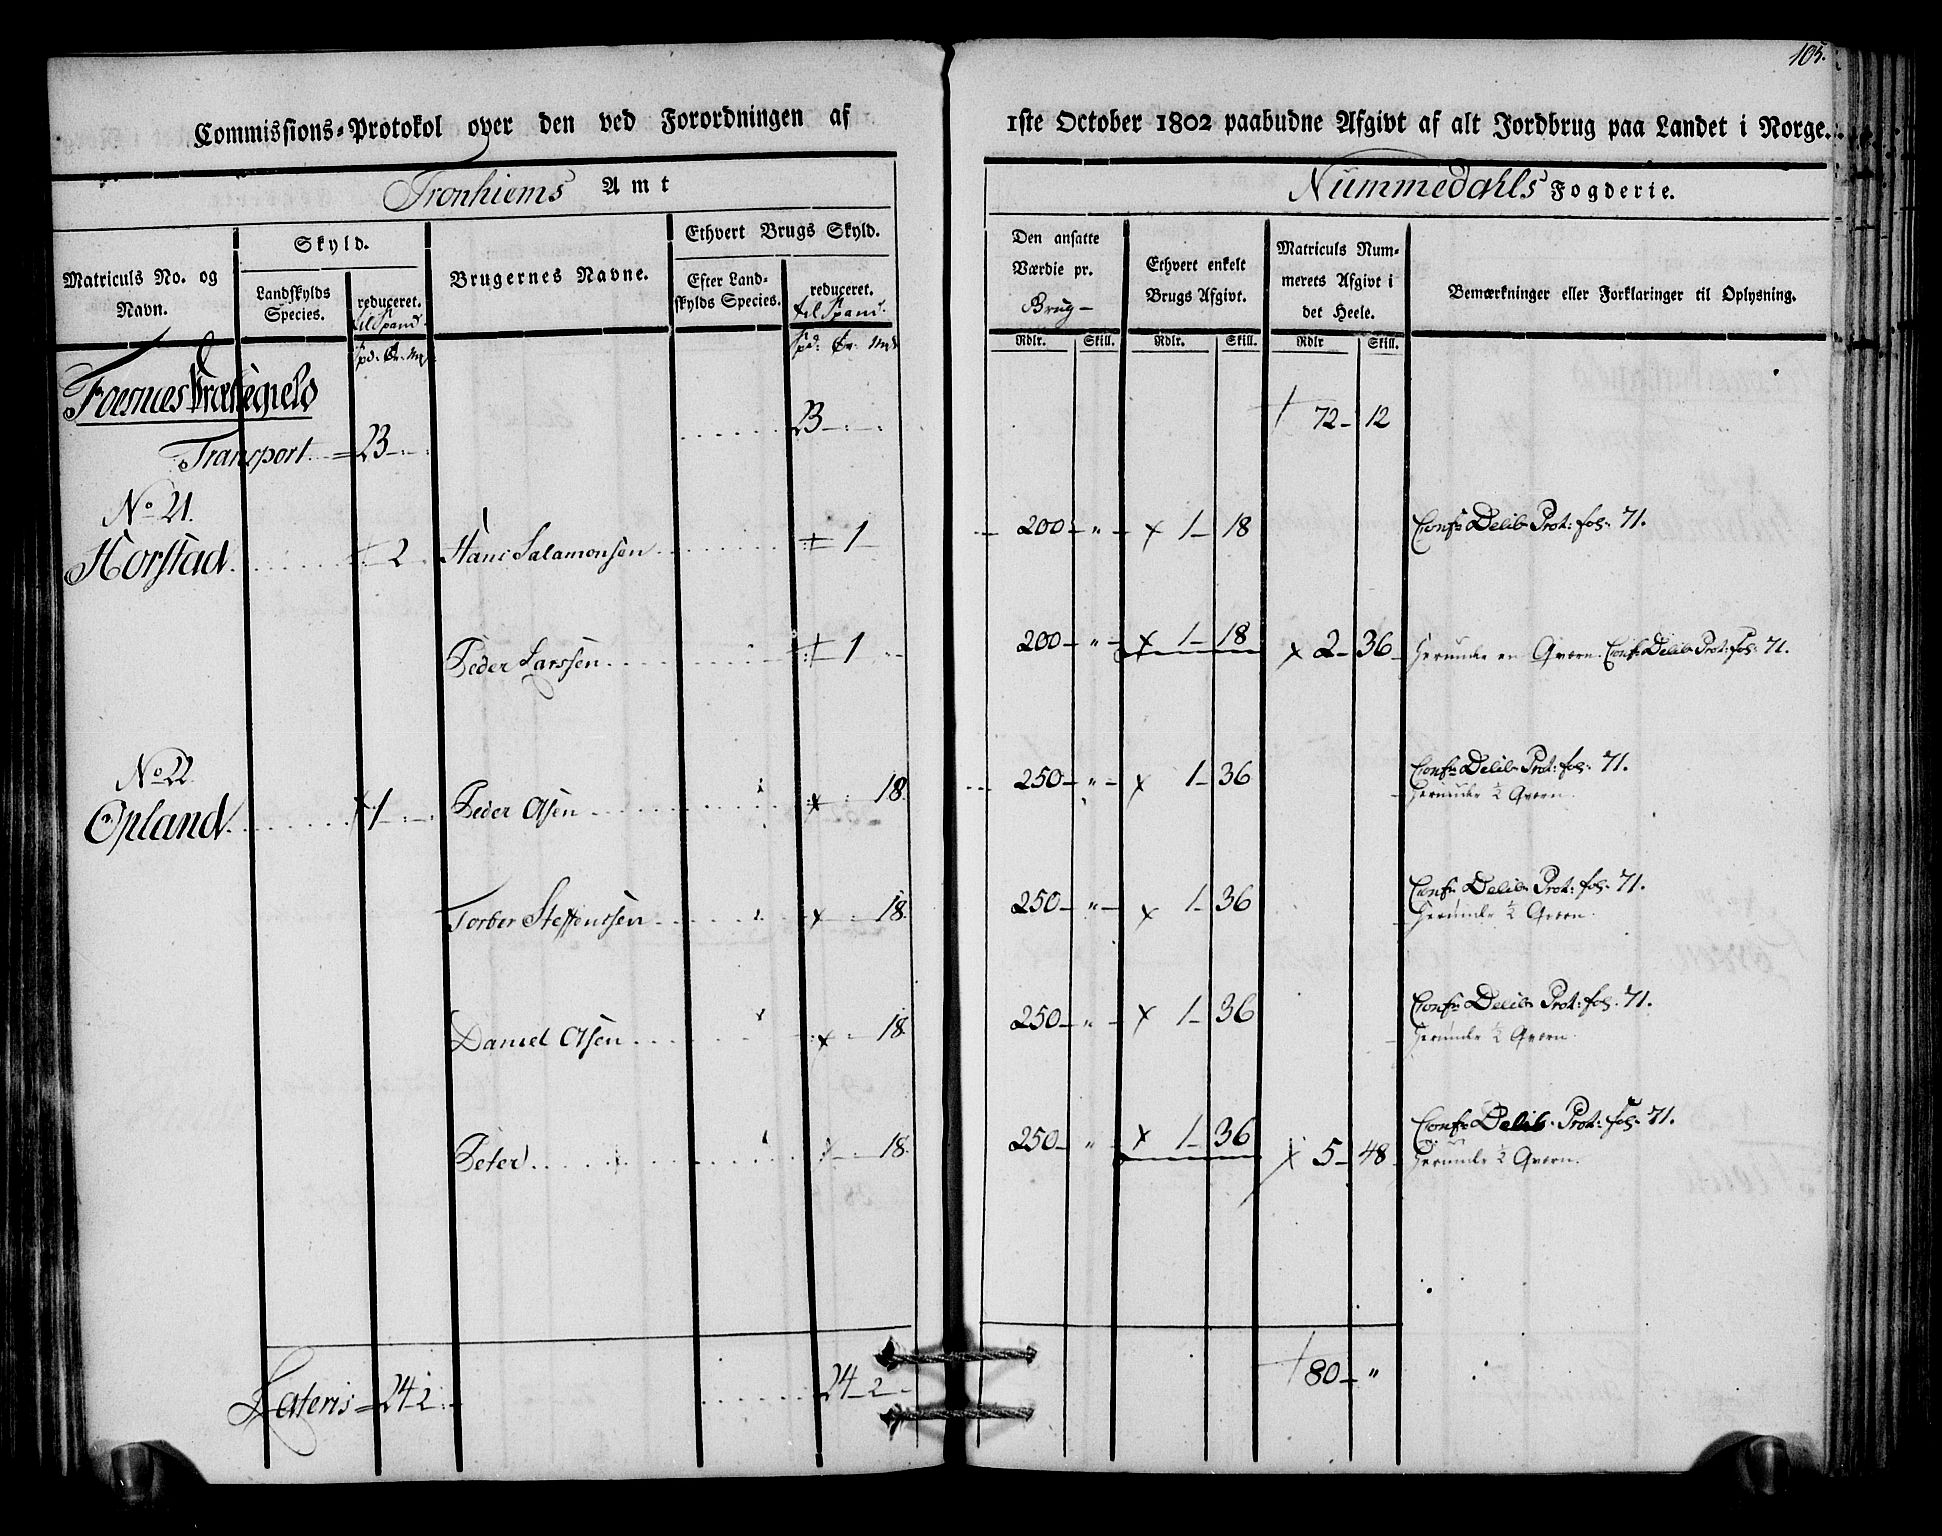 105.
Commissions-Protokol over den ved Forordningen af 1ste October 1802 paabudne Afgivt af alt Jordbrug paa Landet i Norge.
Tronhiems Amt
Nummedahls Fogderie.
Matriculs No. og Navn.
Skyld.
Landskylds Species.
reduceret. til Spand.
Brugernes Navne.
Ethvert Brugs Skyld.
Efter Landskylds Species.
reduceret. til Spand.
Den ansatte Værdie pr. Brug
Ethvert enkelt Brugs Afgivt.
Matriculs Nummerets Afgivt i det Heele.
Bemærkninger eller Forklaringer til Oplysning.
Spd: Ør: Mk
Spd: Ør: Mk
Rdlr. Skill. Rdlr. Skill. Rdlr Skill.
Foesnes Præstegield
Transport 23 23 72 12
No 21.
Horstad 2 Hans Salamonsen 1 200 " 1 18 Confr Delib Prot: fol: 71.
Peder Larssen 1 200 " 1 18 2 36 Herunder en Qværn. Confr Delib Prot: fol: 71.
No 22
Opland 1 Peder Olsen 18 250 " 1 36 Confr Delib Prot: fol: 71.
Herunder ½ Qværn.
Torber Steffensen 18. 250 " 1 36 Confr Delib Prot: fol: 71.
Herunder ½ Qværn.
Daniel Olsen 18 250 " 1 36 Confr Delib Prot: fol: 71.
Herunder ½ Qværn.
Peter 18. 250 " 1 36 5 48 Confr Delib Prot: fol: 71.
Herunder ½ Qværn.
Lateris 24 2 24 2 80 "